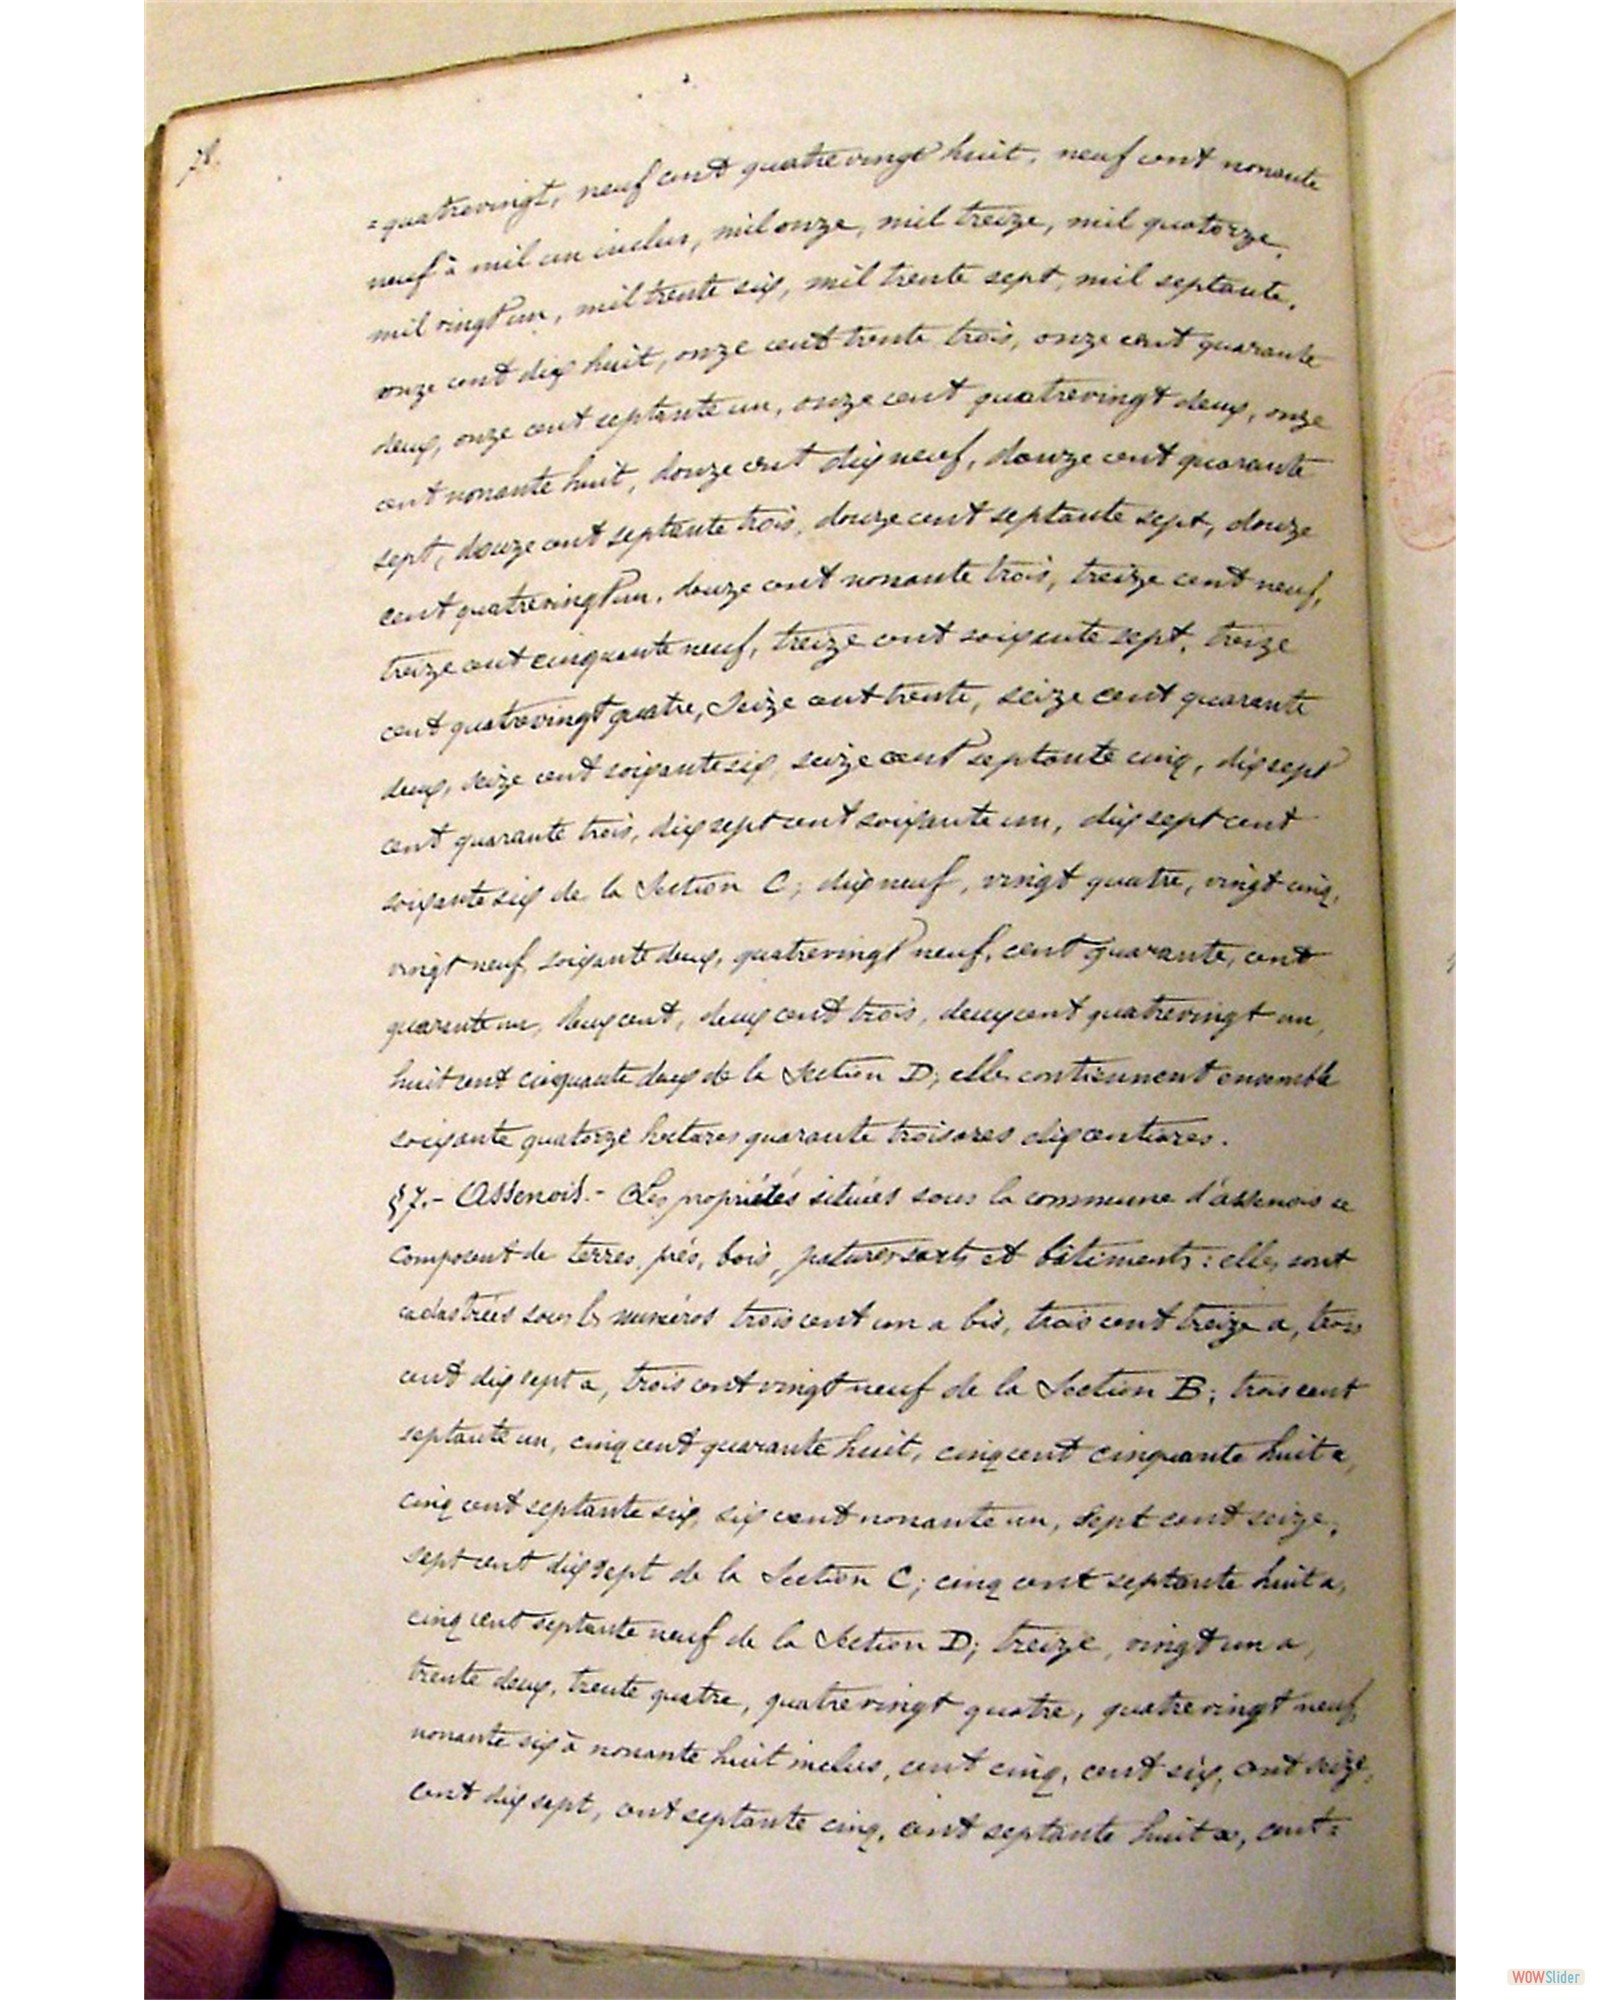 78.
=quatrevingt, neuf cent quatrevingt huit, neuf cent nonante
neuf à mil un inclus, mil onze, mil treize, mil quatorze,
mil vingt un, mil trente six, mil trente sept, mil septante,
onze cent dix huit, onze cent trente trois, onze cent quarante
deux, onze cent septante un, onze cent quatrevingt deux, onze
cent nonante huit, douze cent dix neuf, douze cent quarante
sept, douze cent septante trois, douze cent septante sept, douze
cent quatrevingt un, douze cent nonante trois, treize cent neuf,
treize cent cinquante neuf, treize cent soixante sept, treize
cent quatrevingt quatre, Seize cent trente, seize cent quarante
deux, seize cent soixante six, seize cent septante cinq, dix sept
cent quarante trois, dix sept cent soixante un, dix sept cent
soixante six de la Section C; dix neuf, vingt quatre, vingt cinq,
vingt neuf, soixante deux, quatrevingt neuf, cent quarante, cent
quarante un, deux cent, deux cent trois, deux cent quatrevingt un,
huit cent cinquante deux de la Section D; elles contiennent ensemble
soixante quatorze hectares quarante trois ares dix centiares.
§7.- Assenois.- Les propriétés situées sous la commune d'assenois se
composent de terres, prés, bois, patures sarts et bâtiments: elles sont
cadastrées sous les numéros trois cent un a bis, trois cent treize a, trois
cent dix sept a, trois cent vingt neuf de la Section B; trois cent
septante un, cinq cent quarante huit, cinq cent cinquante huit a,
cinq cent septante six, six cent nonante un, Sept cent seize,
sept cent dix sept de la Section C; cinq cent septante huit a,
cinq cent septante neuf de la Section D; treize, vingt un a,
trente deux, trente quatre, quatrevingt quatre, quatrevingt neuf,
nonante six à nonante huit inclus, cent cinq, cent six, cent seize,
cent dix sept, cent septante cinq, cent septante huit a, cent=
WOWSlider